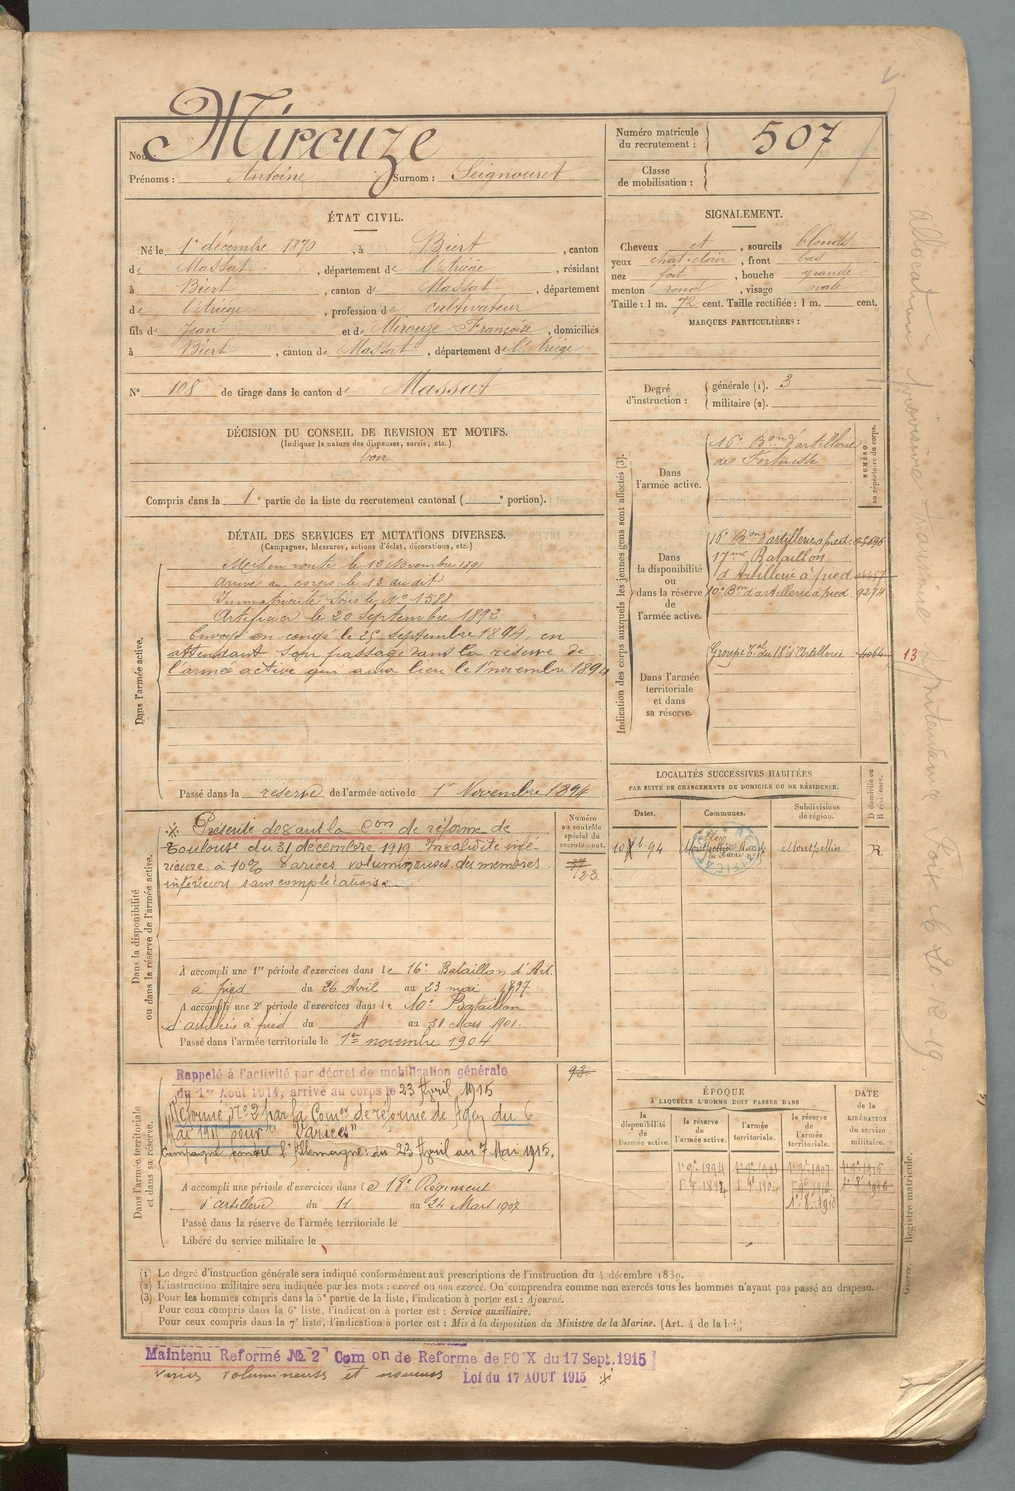 Nom : Mirouze
Prénoms : Antoine Surnom : Seignouret
Numéro matricule du recrutement : 507
Classe de mobilisation :
ÉTAT CIVIL.
Né le 1er décembre 1870, à Biert, canton
de Massat, département de l'Ariège, résidant
à Biert, canton de Massat, département
de l'Ariège, profession de cultivateur
fils de Jean et de Mirouze Françoise, domiciliés
à Biert, canton de Massat, département de l'Ariège
N° 108 de tirage dans le canton de Massat
SIGNALEMENT.
Cheveux et, sourcils blonds
yeux chat. clair, front bas
nez fort, bouche grande
menton rond, visage ovale
Taille : 1 m. 72 cent. Taille rectifiée : 1 m. cent.
MARQUES PARTICULIÈRES :
Degré d'instruction :
générale (1). 3
militaire (2).
DÉCISION DU CONSEIL DE REVISION ET MOTIFS.
(Indiquer la nature des dispenses, sursis, etc.)
bon
Compris dans la 1e partie de la liste du recrutement cantonal ( e portion).
DÉTAIL DES SERVICES ET MUTATIONS DIVERSES.
(Campagnes, blessures, actions d'éclat, décorations, etc.)
Dans l'armée active.
Mis en route le 12 Novembre 1891
Arrivé au corps le 13 dudit
Immatriculé sous le N° 1588
Artificier le 20 Septembre 1892
Envoyé en congé le 25 Septembre 1894, en
attendant son passage dans la réserve de
l'armée active qui aura lieu le 1er novembre 1894
Passé dans la réserve de l'armée active le 1er Novembre 1894
Indication des corps auxquels les jeunes gens sont affectés (3).
NUMÉRO au répertoire du corps.
Dans l'armée active.
16e Bon d'artillerie
de Forteresse
Dans la disponibilité ou dans la réserve de l'armée active.
16e Bon d'artillerie à pied
17me Bataillon
d'Artillerie à pied
10e Bon d'artillerie à pied. 9294
Dans l'armée territoriale et dans sa réserve.
Groupe Tal du 18e d'Artillerie 13
LOCALITÉS SUCCESSIVES HABITÉES
PAR SUITE DE CHANGEMENTS DE DOMICILE OU DE RÉSIDENCE.
Dates. Communes. Subdivisions de région. D domicile ou R résidence.
94 Montpellier R
Dans la disponibilité ou dans la réserve de l'armée active.
Numéro au contrôle spécial du recrutement.
Présenté devant la Con de réforme de
Toulouse du 31 décembre 1919 Invalidité infé-
rieure à 10% Varices volumineuses des membres
inférieurs sans complications.
23
A accompli une 1re période d'exercices dans le 16e Bataillon d'Art.
à pied du 26 Avril au 23 mai 1897
A accompli une 2e période d'exercices dans le 10e Bataillon
d'artillerie à pied du 4 au 31 Mars 1901.
Passé dans l'armée territoriale le 1er novembre 1904
Dans l'armée territoriale et dans sa réserve.
93
Rappelé à l'activité par décret de mobilisation générale
du 1er Août 1914, arrivé au corps le 23 Avril 1915
Réformé N° 2 par la Comon de réforme de Agen du 6
Mai 1915 pour "Varices"
Campagne contre l'Allemagne : du 23 Avril au 7 Mai 1915.
A accompli une période d'exercices dans le 18e Régiment
d'artillerie du 11 au 24 Mars 1907
Passé dans la réserve de l'armée territoriale le
Libéré du service militaire le
ÉPOQUE
À LAQUELLE L'HOMME DOIT PASSER DANS
la disponibilité de l'armée active. la réserve de l'armée active. l'armée territoriale. la réserve de l'armée territoriale.
DATE de la LIBÉRATION du service militaire.
1er 9bre 1894
(1) Le degré d'instruction générale sera indiqué conformément aux prescriptions de l'instruction du 4 décembre 1889.
(2) L'instruction militaire sera indiquée par les mots : exercé ou non exercé. On comprendra comme non exercés tous les hommes n'ayant pas passé au drapeau.
(3) Pour les hommes compris dans la 5e partie de la liste, l'indication à porter est : Ajourné.
Pour ceux compris dans la 6e liste, l'indication à porter est : Service auxiliaire.
Pour ceux compris dans la 7e liste, l'indication à porter est : Mis à la disposition du Ministre de la Marine. (Art. 4 de la loi)
Maintenu Réformé N° 2 Com on de Reforme de FOIX du 17 Sept. 1915
Loi du 17 AOUT 1915
Registre matricule.